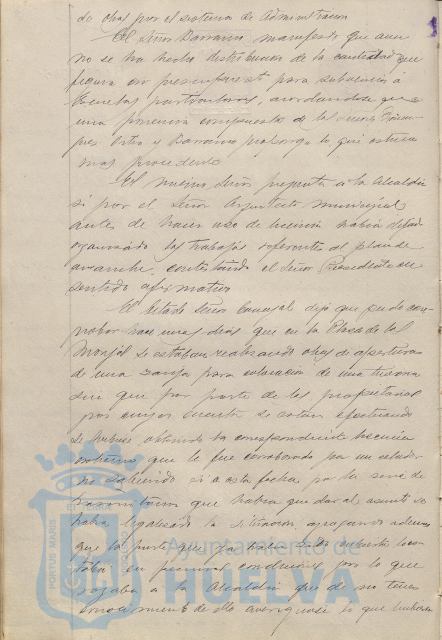 de obras por el sistema de Administracion
El Señor Barranco manifestó que aun
no se ha hecho distribucion de la cantidad que
figura en presupuesto para subvencion á
Escuelas particulares, acordandose que
una ponencia compuesta de los señores
pes Ortiz y Barranco proponga lo que estime
mas procedente
El mismo Señor pregunta á la Alcaldia
si por el Señor Arquitecto municipal
antes de hacer uso de licencia habia dejado
organizado los trabajos referentes al plan de
ensanche, contestando el Señor Presidente en
sentido afirmativo
El citado Señor Concejal dijo que pudo com
probar hace unos dias que en la Plaza de las
Monjas se estaban realizando obras de apertura
de una zanja para colocacion de una tuberia
sin que por parte de los propietarios
por cuya cuenta se estan efectuando
se hubiese obtenido la correspondiente licencia
extremo que le fue corroborado por un celador
no sabiendo si a esta fecha por la serie de
que habia que dar al asunto se
habia legalizado la situacion, agregando ademas
que la parte que ya habia sido cubierta
en pesimas condiciones por lo que
rogaba a la Alcaldia que de no tener
conocimiento de ello averiguase lo que hubiera
PORTUS MARIS
Ayuntamiento de
HUELVA